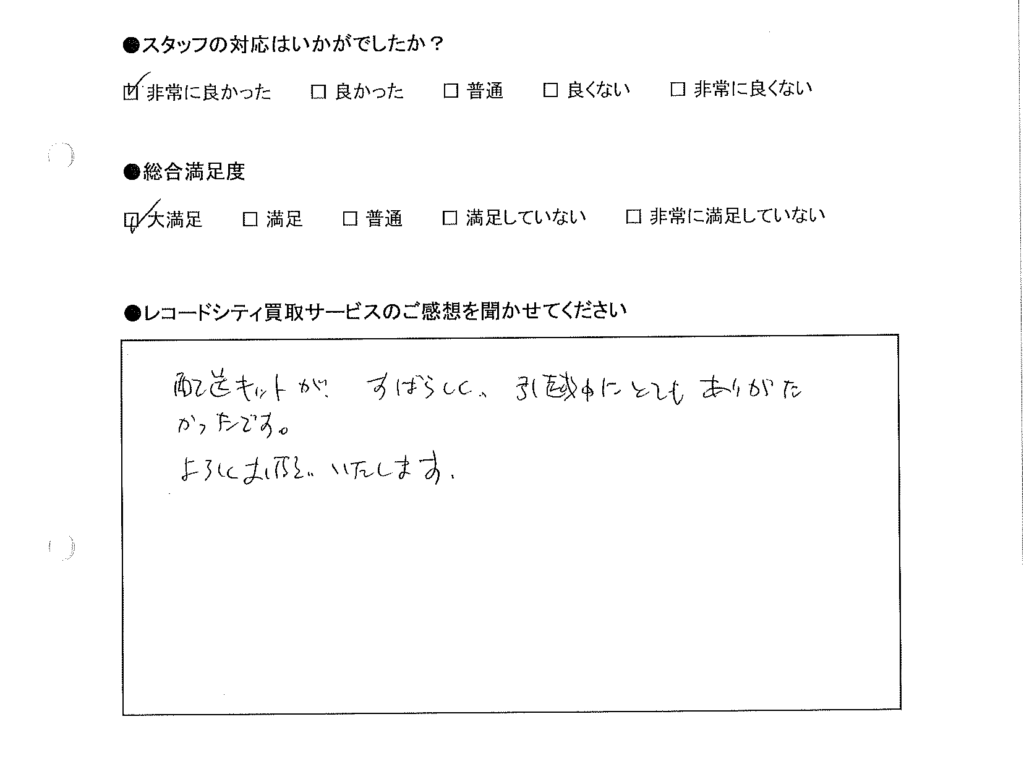 ●スタッフの対応はいかがでしたか？
☑ 非常に良かった □ 良かった □ 普通 □ 良くない □ 非常に良くない
●総合満足度
☑ 大満足 □ 満足 □ 普通 □ 満足していない □ 非常に満足していない
●レコードシティ買取サービスのご感想を聞かせてください
配送キットが、すばらしく、引越中にとてもありがた
かったです。
よろしくお願いいたします.